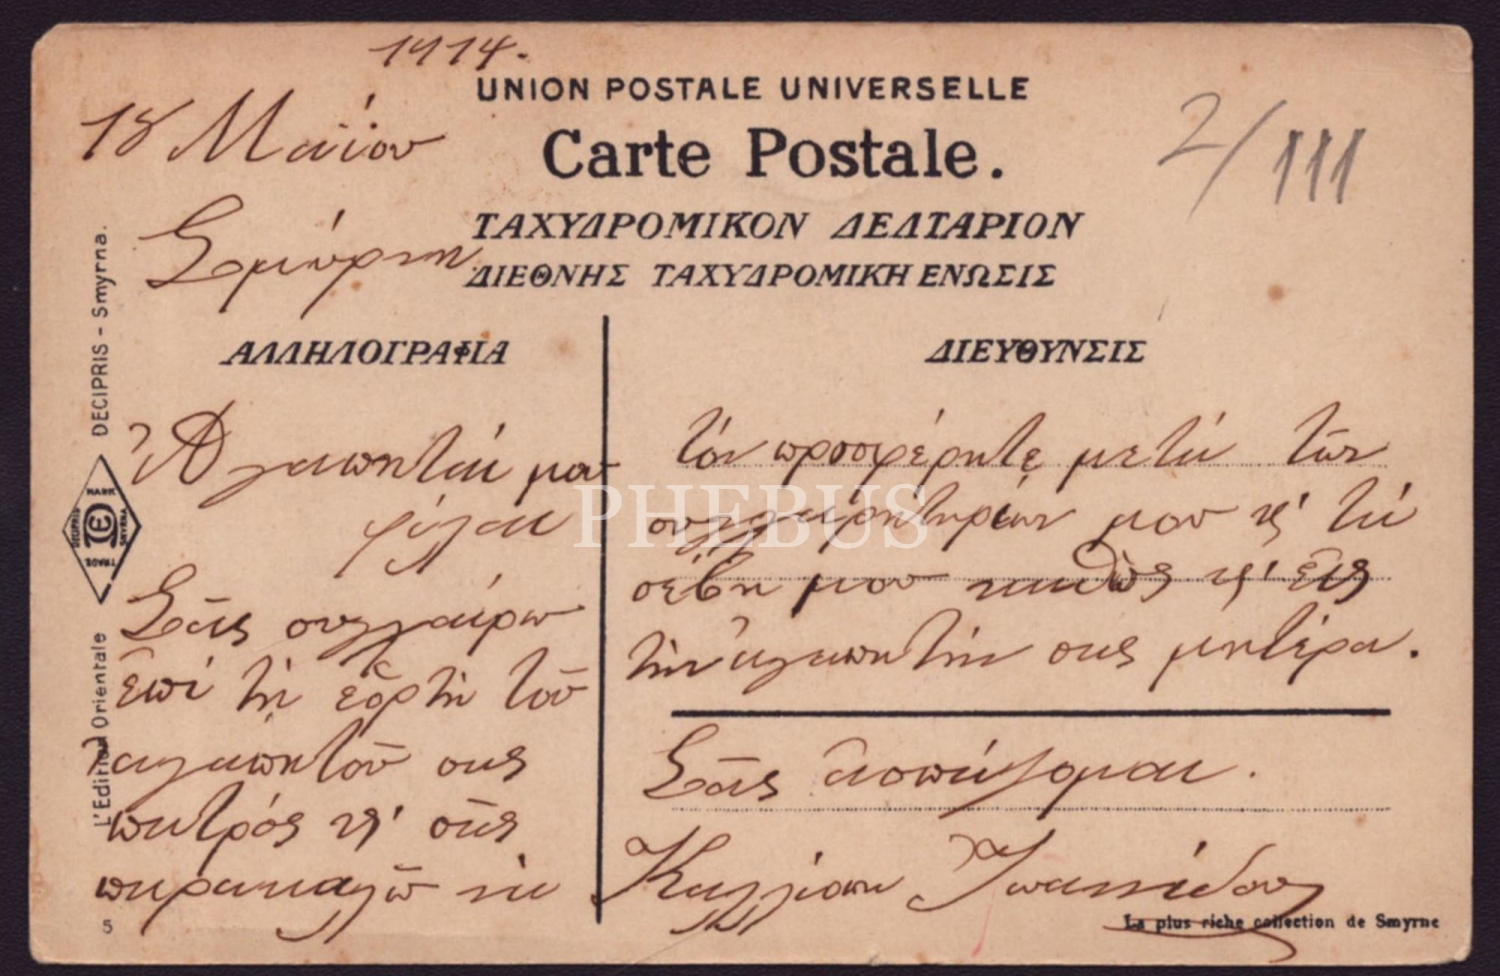 1914.
18 Μαΐου
Σμύρνη
UNION POSTALE UNIVERSELLE
Carte Postale.
ΤΑΧΥΔΡΟΜΙΚΟΝ ΔΕΛΤΑΡΙΟΝ
ΔΙΕΘΝΗΣ ΤΑΧΥΔΡΟΜΙΚΗ ΕΝΩΣΙΣ
2/111
ΑΛΛΗΛΟΓΡΑΦΙΑ
Ἀγαπηταί μου
φίλαι
Σᾶς συγχαίρω
ἐπί τῇ ἑορτῇ τοῦ
ἀγαπητοῦ σας
πατρός κ' σᾶς
παρακαλῶ νά
ΔΙΕΥΘΥΝΣΙΣ
τόν προσφέρητε μετά τῶν
συγχαρητηρίων μου κ' τά
σέβη μου καθὼς κ' εἰς
τήν ἀγαπητήν σας μητέρα.
Σᾶς ἀσπάζομαι.
Καλλιόπη Ἰωαννίδου
L'Edition Orientale
DECIPRIS - Smyrna.
MARK
DECIPRIS
SMYRNA
TRADE
5
La plus riche collection de Smyrne
PHEBUS